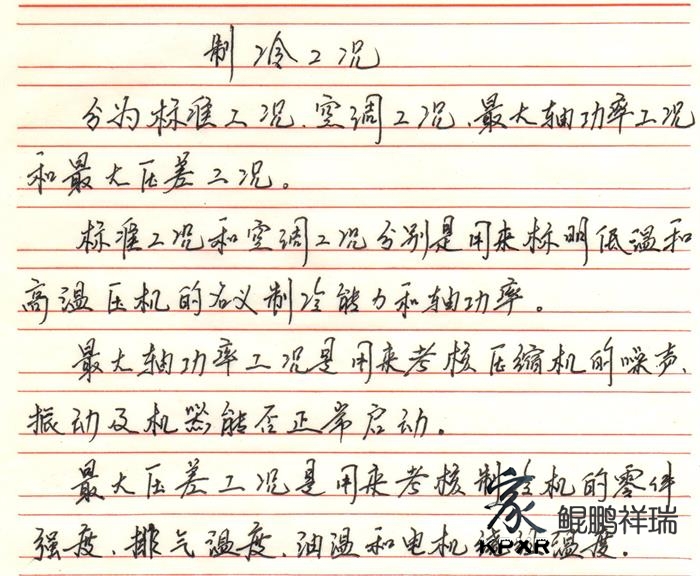 制冷工况
分为标准工况、空调工况、最大轴功率工况
和最大压差工况。
标准工况和空调工况分别是用来标明低温和
高温压机的名义制冷能力和轴功率。
最大轴功率工况是用来考核压缩机的噪声、
振动及机器能否正常启动。
最大压差工况是用来考核制冷机的零件
强度、排气温度、油温和电机绕组温度.
家 鲲鹏祥瑞
KPXR